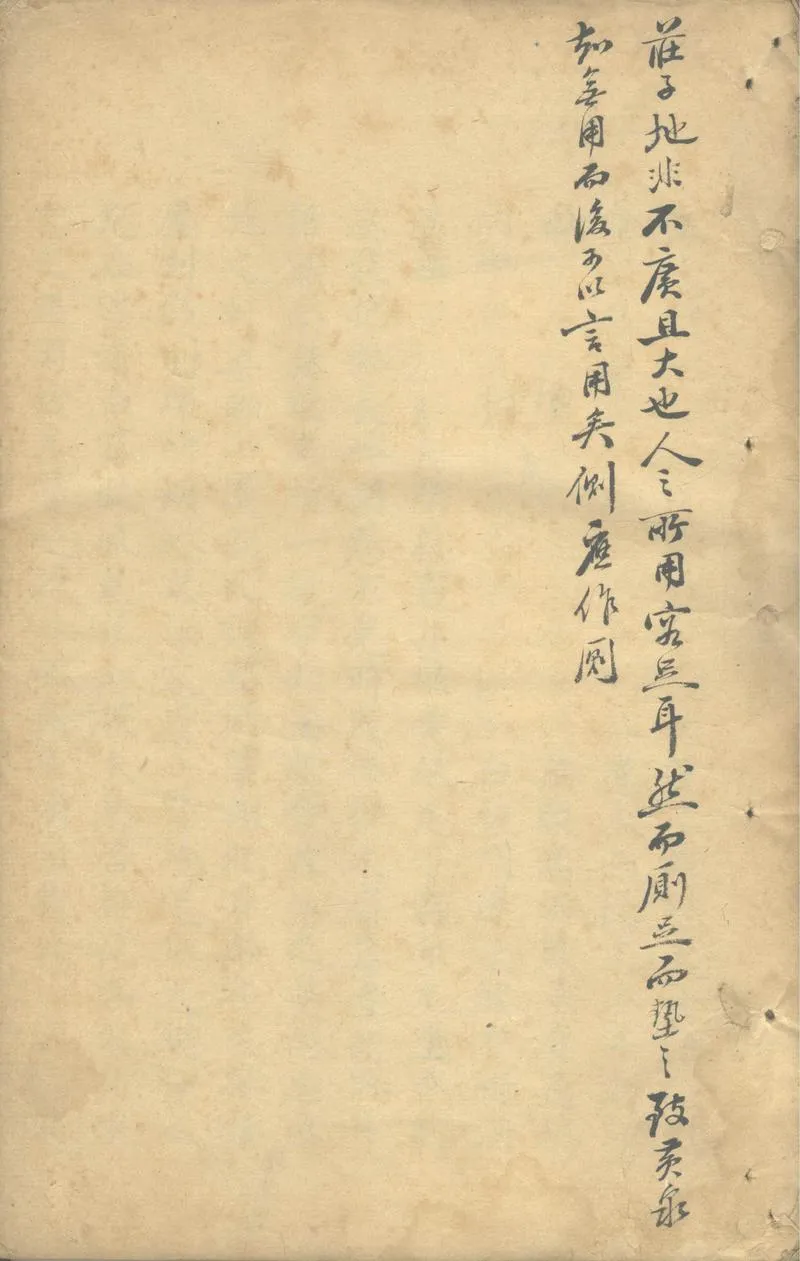 莊子地非不廣且大也人之所用容足耳然而厠足而墊之致黃泉
知無用而後可以言用矣側應作厠